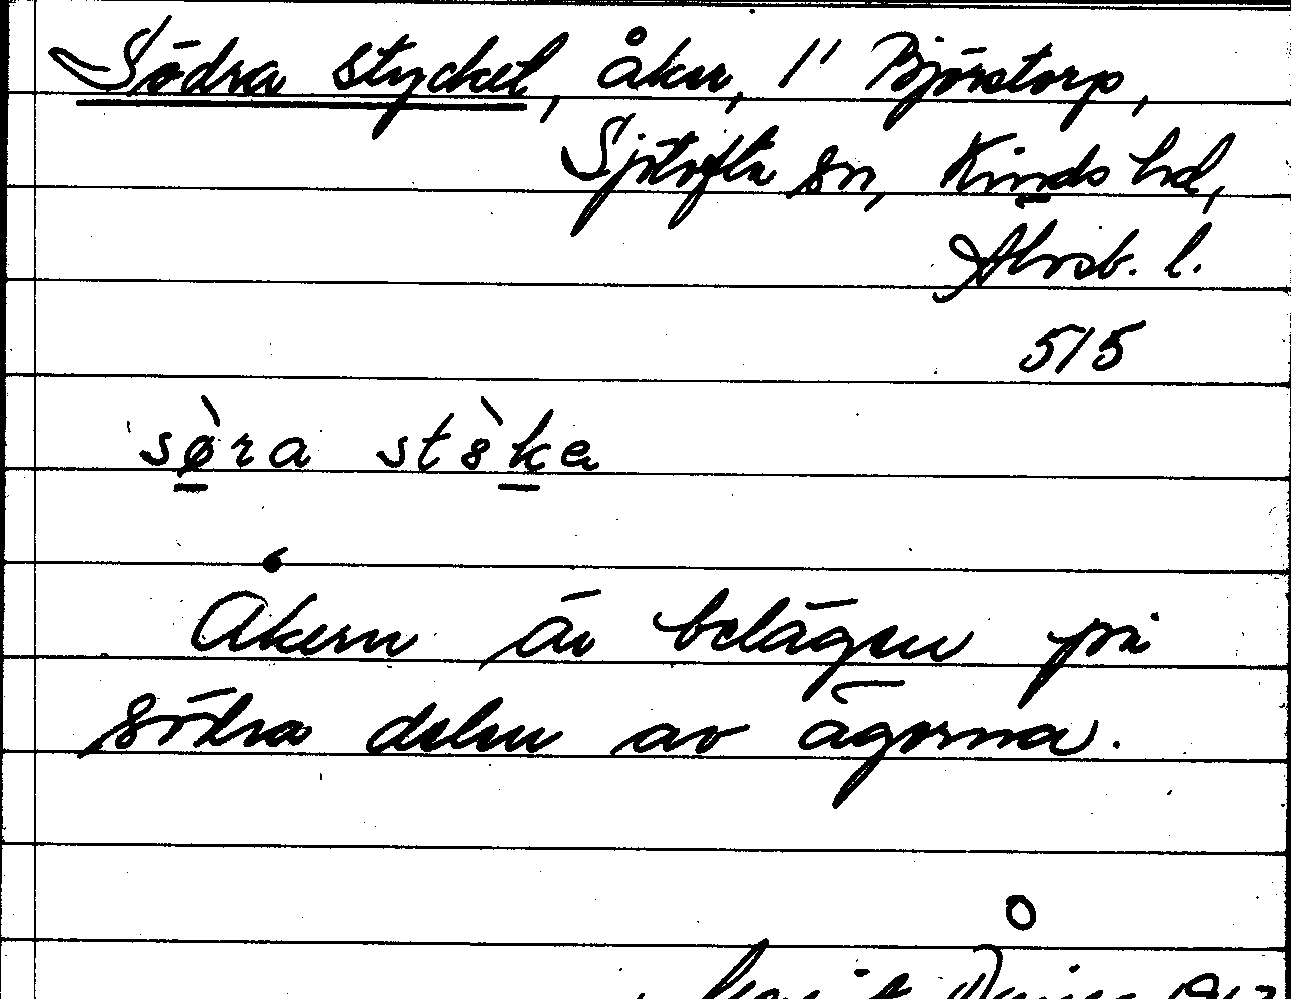 Södra stycket, åker, 1" Björstorp,
Sjötofta sn, Kinds hd,
Älvsb. l.
515
sø̀ra stö̀ke
Åkern är belägen på
södra delen av ägorna.